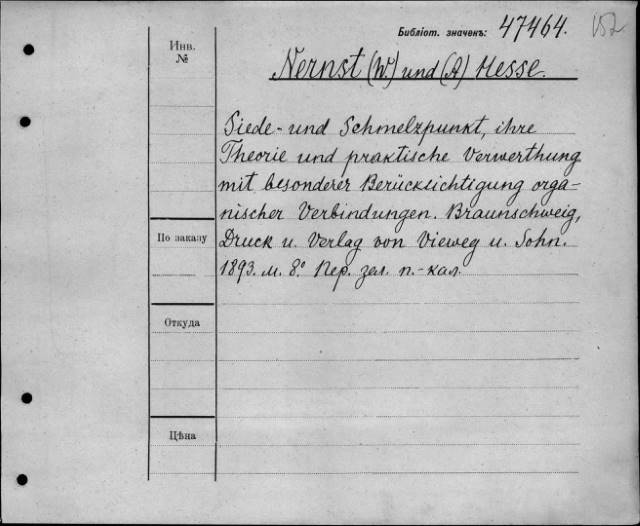 Библіот. значекъ: 47464. 152
Инв.
№
Nernst (W.) und (A) Hesse.
Siede- und Schmelzpunkt, ihre
Theorie und praktische Verwerthung
mit besonderer Berücksichtigung orga-
nischer Verbindungen. Braunschweig,
По заказу
Druck u. Verlag von Vieweg u. Sohn.
1893. м. 8.º Пер. зел. п.-кал.
Откуда
Цѣна